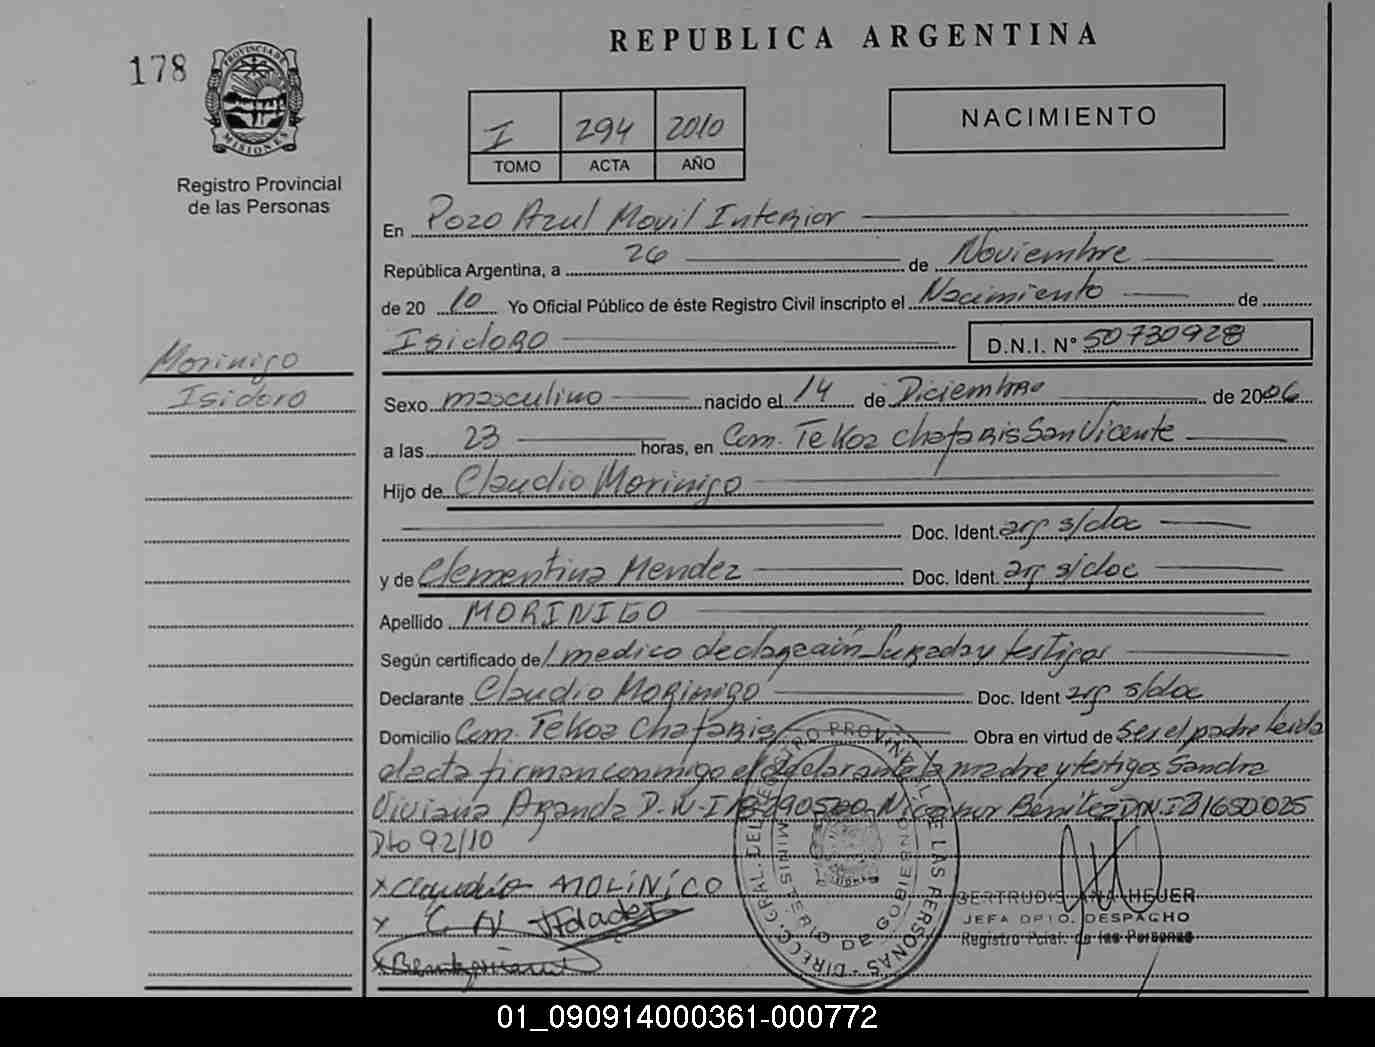 REPUBLICA ARGENTINA
178
PROVINCIA DE MISIONES
Registro Provincial
de las Personas
I 294 2010
TOMO ACTA AÑO
NACIMIENTO
En Pozo Azul Movil Interior
República Argentina, a 26 de Noviembre
de 2010 Yo Oficial Público de éste Registro Civil inscripto el Nacimiento de
Isidoro D.N.I. Nº 50730928
Morinigo
Isidoro
Sexo masculino nacido el 14 de Diciembre de 2006
a las 23 horas, en Com. Tekoa Chafaris San Vicente
Hijo de Claudio Morinigo
Doc. Ident. arg s/doc
y de Clementina Mendez Doc. Ident. arg s/doc
Apellido MORINIGO
Según certificado de/ medico declaración Jurada y testigos
Declarante Claudio Morinigo Doc. Ident arg s/doc
Domicilio Com. Tekoa Chafaris Obra en virtud de ser el padre leida
el acta firman conmigo el declarante la madre y testigos Sandra
Viviana Aranda D.N.I Benitez D.N.I 31650025
Dto 92/10
x Claudio MOLiNiCO
x C N
x
DIREC. GRAL. DEL REGISTRO PROVINCIAL DE LAS PERSONAS
MINISTERIO DE GOBIERNO
GERTRUDIS ANA HEJER
JEFA DPTO. DESPACHO
Registro Pcial. de las Personas
01_090914000361-000772